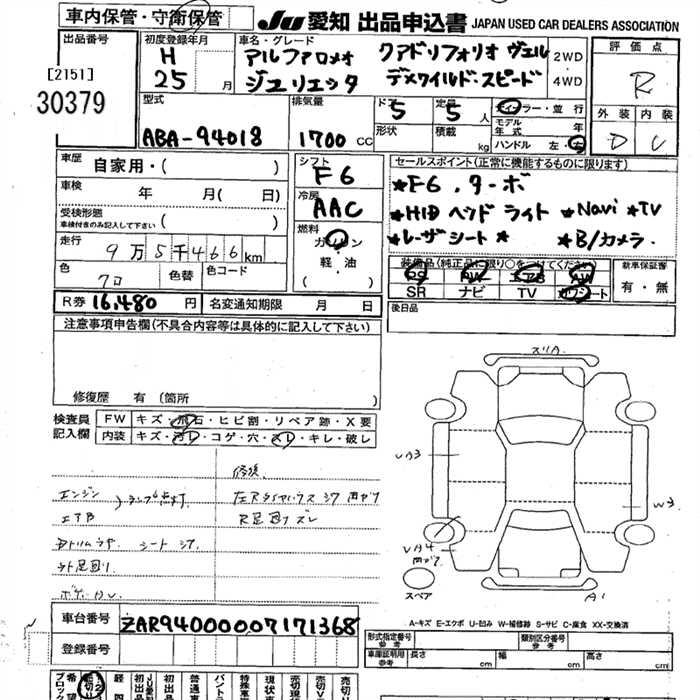 車内保管・守衛保管
JU 愛知 出品申込書 JAPAN USED CAR DEALERS ASSOCIATION
出品番号
[2151]
30379
初度登録年月
H
25 月
車名・グレード
アルファロメオ クアドリフォリオ ヴェル
ジュリエッタ デスワイルド・スピード
2WD
4WD
評価点
R
外装 内装
D C
型式
ABA-94018
排気量
1700 CC
ドア
5
定員
5 人
形状
積載
kg
ディーラー・並行
モデル年式 年
ハンドル 左・右
車歴
自家用・( )
車検
年 月( 日)
受検形態
車検付きのみ記入して下さい ( )
走行
9万5千466 km
色
クロ
色替
色コード
R券 16,480 円
名変通知期限 月 日
シフト
F6
冷房
AAC
燃料
ガソリン
軽・油
セールスポイント(正常に機能するものに限ります)
★F6 .ターボ
★HID ヘッド ライト ★Navi ★TV
★レーザシート★ ★B/カメラ.
装備品(純正品に限り○をつけてください)
PS PW エアB AW
SR ナビ TV カワシート
新車保証書
有・無
後日品
注意事項申告欄(不具合内容等は具体的に記入して下さい)
修復歴 有 (箇所
検査員
記入欄
FW キズ・飛石・ヒビ割・リペア跡・X要
内装 キズ・汚レ・コゲ・穴・スレ・キレ・破レ
修後
エンジン
エアB
ランプ点灯
シート
スリA.
UA3
W3
UA4
A1
スペア
A-キズ E-エクボ U-凹み W-補修跡 S-サビ C-腐食 XX-交換済
車台番号
ZAR94000007171368
登録番号
形式指定番号
参考
類別区分番号
参考
車庫証明用
参考
長さ cm
幅 cm
高さ cm